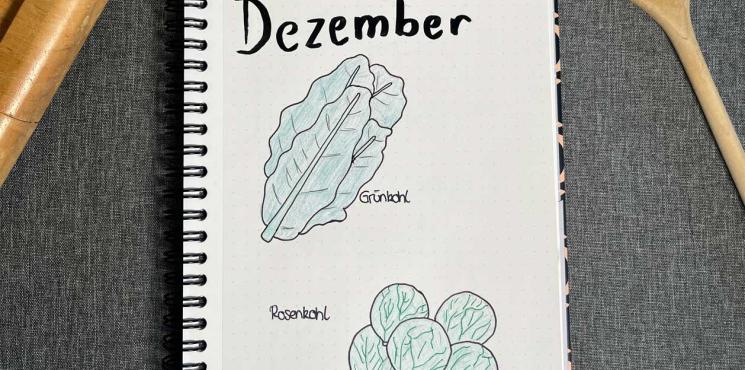 Dezember
Grünkohl
Rosenkohl